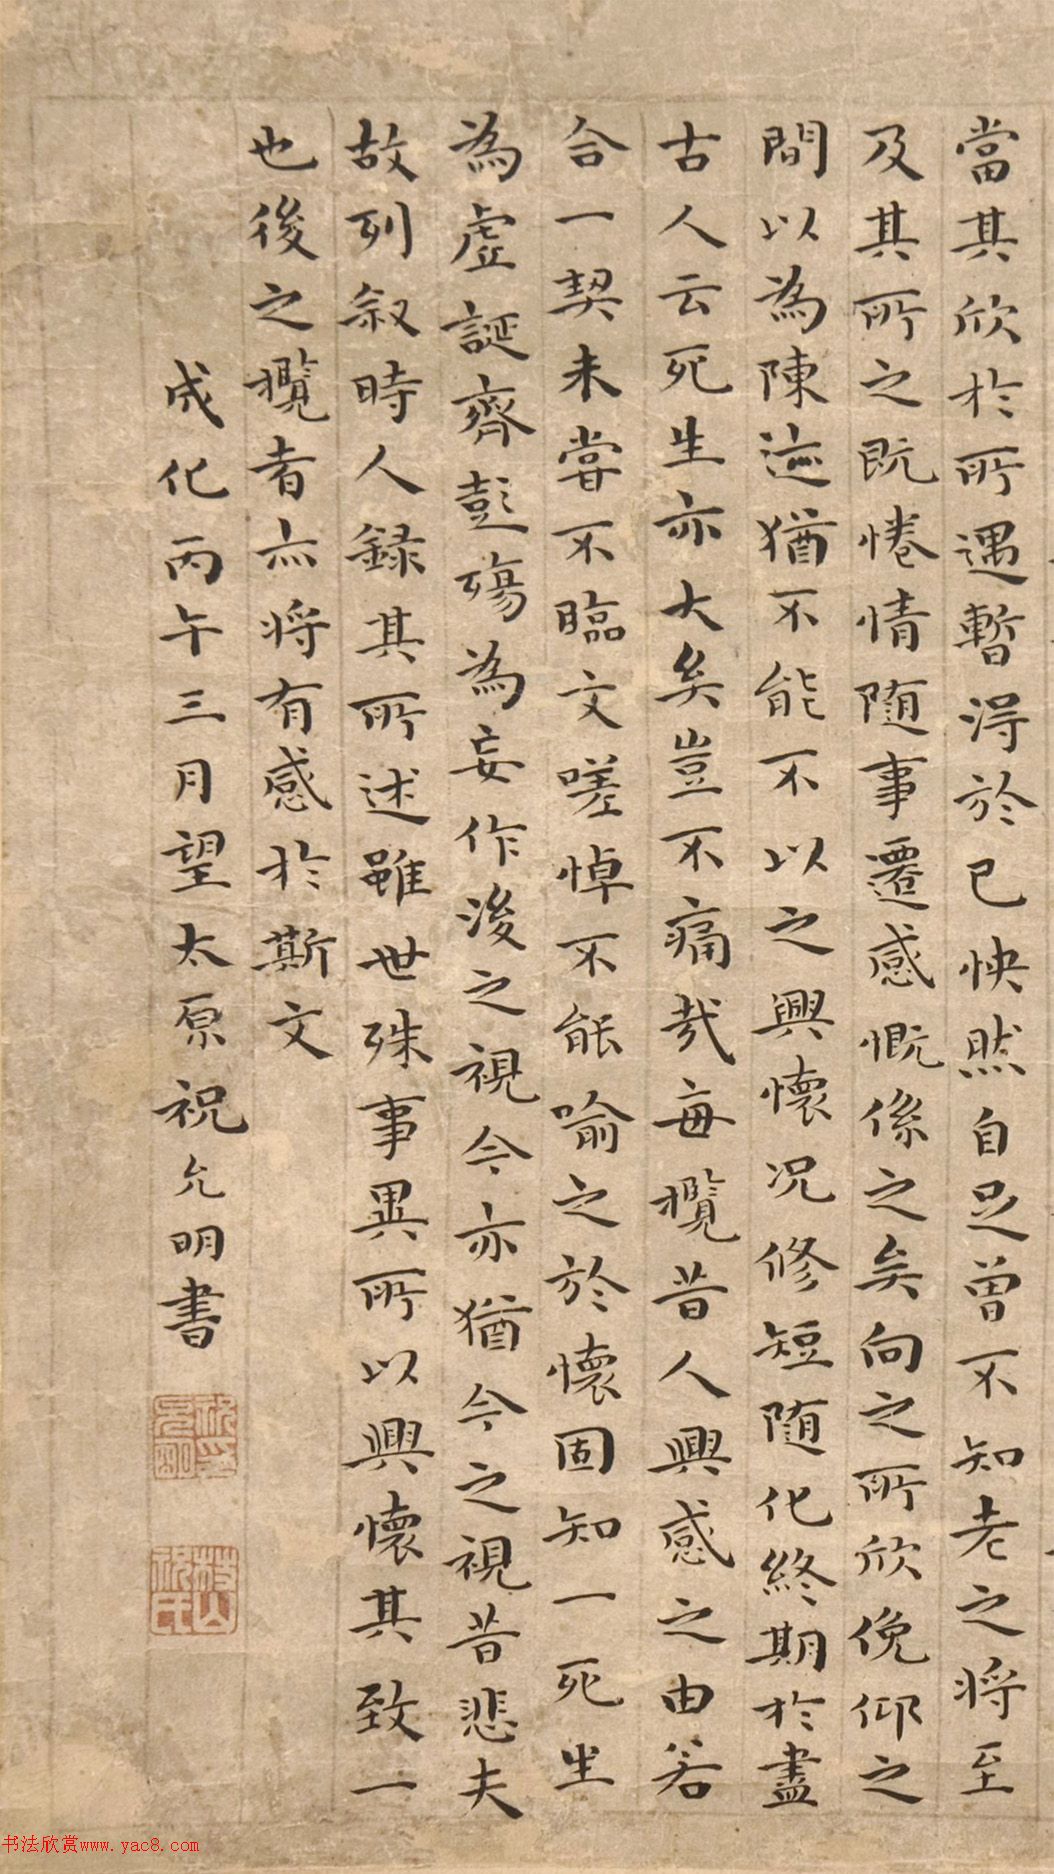 當其欣於所遇暫得於己怏然自足曾不知老之將至
及其所之既惓情随事遷感慨係之矣向之所欣俛仰之
間以為陳迹猶不能不以之興懷况修短随化終期於盡
古人云死生亦大矣豈不痛哉每攬昔人興感之由若
合一契未甞不臨文嗟悼不能喻之於懷固知一死生
為虛誕齊彭殤為妄作後之視今亦猶今之視昔悲夫
故列叙時人錄其所述雖世殊事異所以興懷其致一
也後之攬者亦將有感於斯文
成化丙午三月望太原祝允明書
書法欣赏www.yac8.com